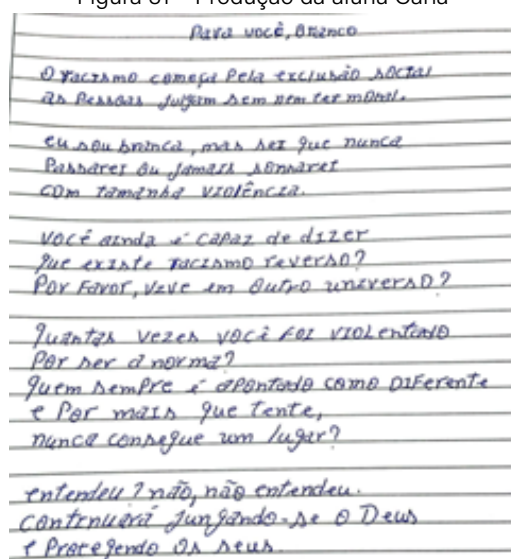 Figura 31 – Produção da aluna Carla
Para você, Branco
O racismo começa Pela exclusão social
as Pessoas julgam sem nem ter moral.
eu sou branca, mas sei que nunca
Passarei ou jamais sonharei
com tamanha violência.
você ainda é capaz de dizer
que existe racismo reverso?
Por Favor, vive em outro universo?
quantas vezes você foi violentado
Por ser a norma?
quem sempre é apontado como Diferente
e Por mais que tente,
nunca consegue um lugar?
entendeu? não, não entendeu.
continuará Jungando-se o Deus
e Protegendo os seus.